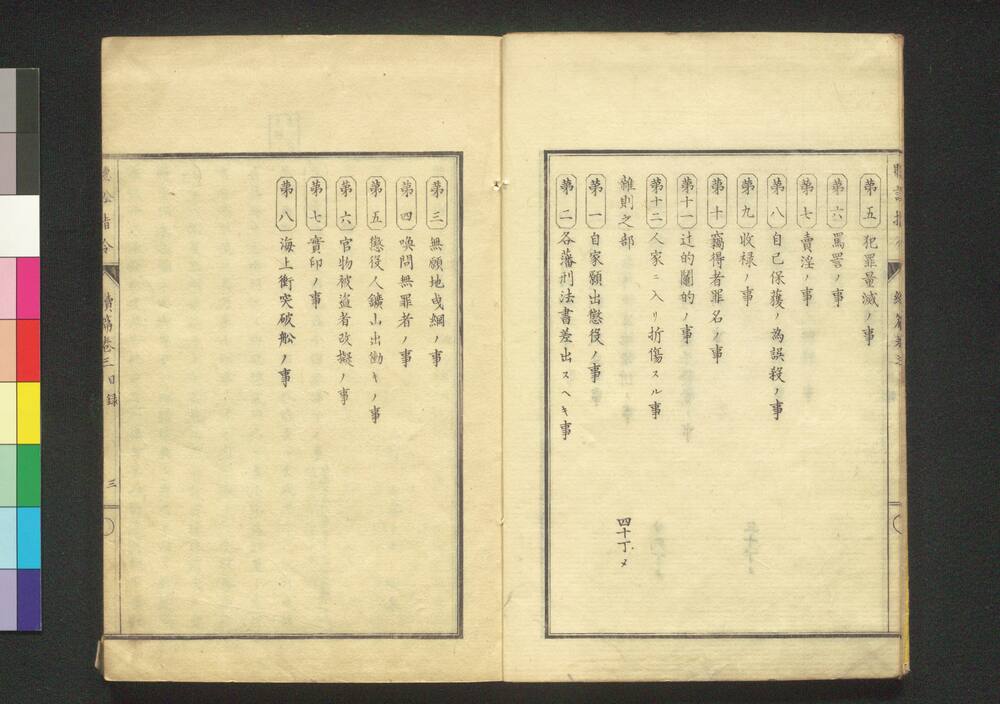 第五 犯罪量減ノ事
第六 罵詈ノ事
第七 賣淫ノ事
第八 自己保護ノ為誤殺ノ事
第九 收禄ノ事
第十 竊得者罪名ノ事
第十一 辻的鬮的ノ事
第十二 人家ニ入リ折傷スル事
雜則之部 四十丁メ
第一 自家願出懲役ノ事
第二 各藩刑法書差出スヘキ事
第三 無願地曳網ノ事
第四 喚問無罪者ノ事
第五 懲役人鑛山出働キノ事
第六 官物被盗者改擬ノ事
第七 實印ノ事
第八 海上衝突破舩ノ事
訟指令 續篇卷三目録 三